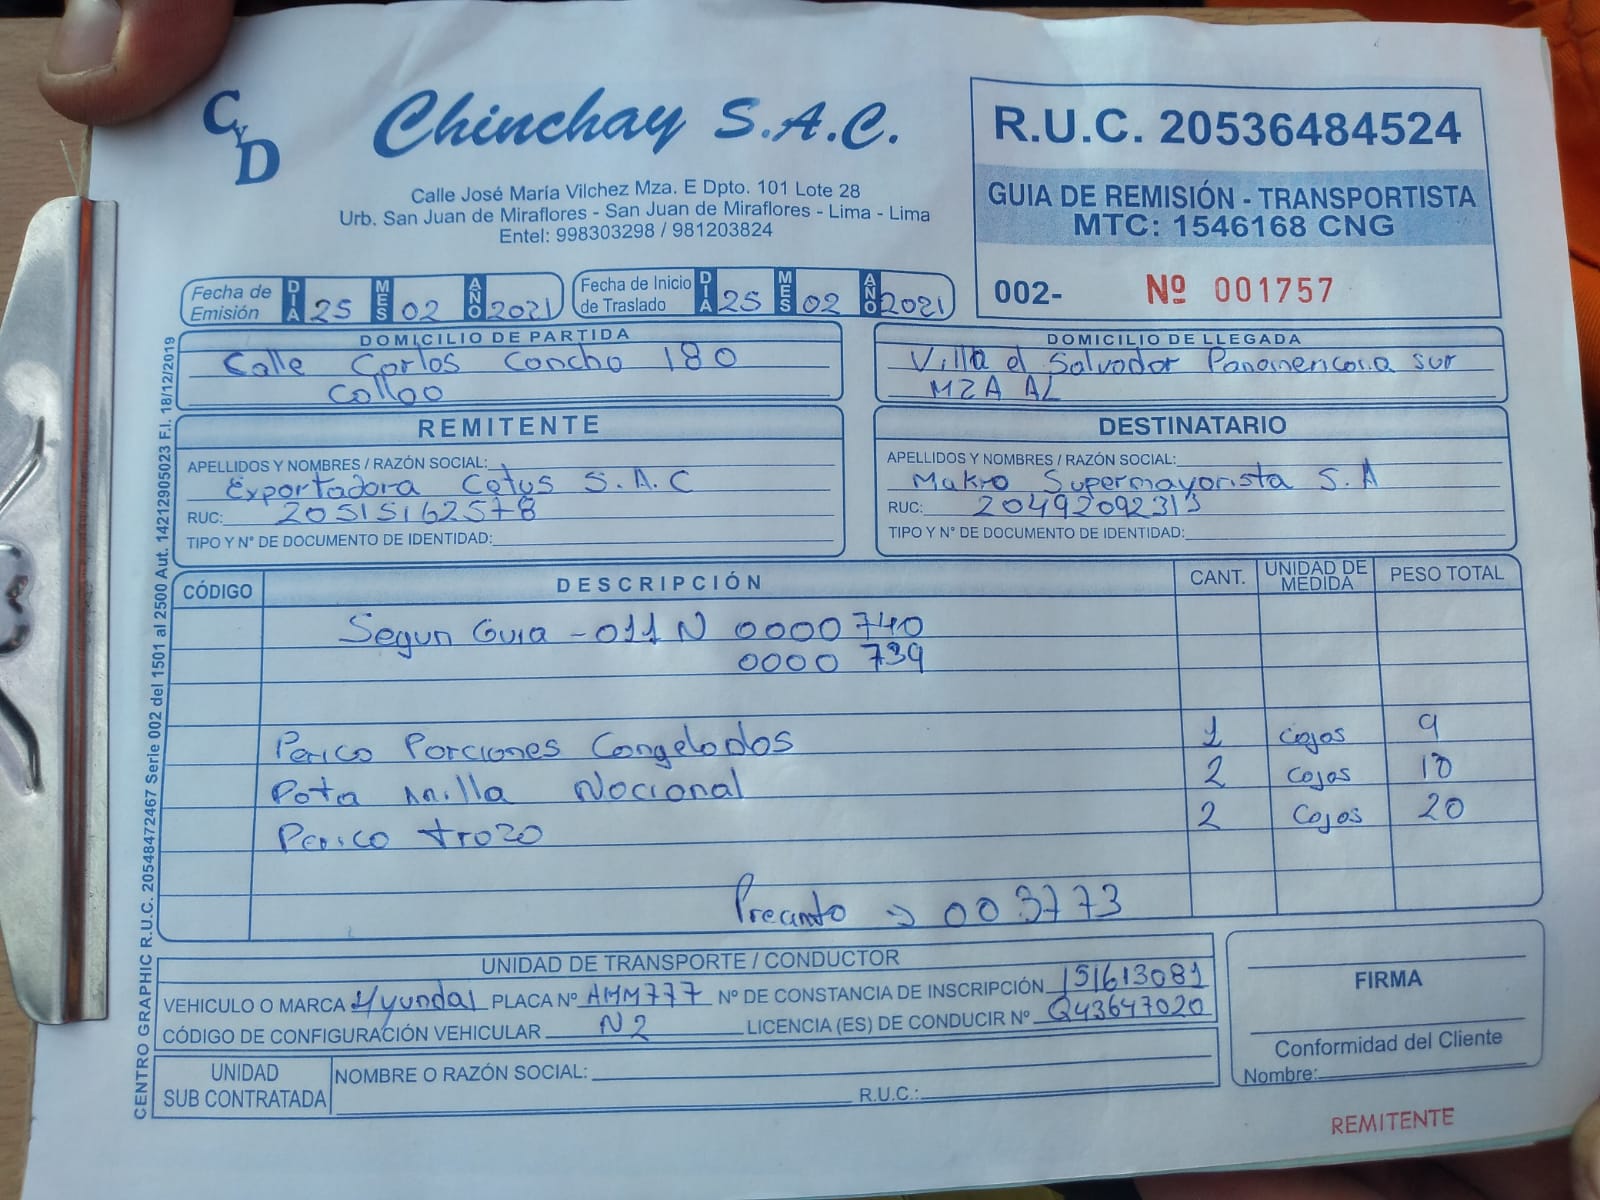 CyD
Chinchay S.A.C.
Calle José María Vilchez Mza. E Dpto. 101 Lote 28
Urb. San Juan de Miraflores - San Juan de Miraflores - Lima - Lima
Entel: 998303298 / 981203824
R.U.C. 20536484524
GUIA DE REMISIÓN - TRANSPORTISTA
MTC: 1546168 CNG
002- Nº 001757
Fecha de Emisión DIA 25 MES 02 AÑO 2021
Fecha de Inicio de Traslado DIA 25 MES 02 AÑO 2021
DOMICILIO DE PARTIDA
Calle Carlos Concha 180
Callao
DOMICILIO DE LLEGADA
Villa el Salvador Panamericana sur
MZA AL
REMITENTE
APELLIDOS Y NOMBRES / RAZÓN SOCIAL:
Exportadora Cetus S.A.C
RUC: 20515162578
TIPO Y N° DE DOCUMENTO DE IDENTIDAD:
DESTINATARIO
APELLIDOS Y NOMBRES / RAZÓN SOCIAL:
Makro Supermayorista S.A
RUC: 20492092313
TIPO Y N° DE DOCUMENTO DE IDENTIDAD:
CÓDIGO DESCRIPCIÓN CANT. UNIDAD DE MEDIDA PESO TOTAL
Segun Guia - 011 N 0000740
0000 739
Perico Porciones Congelados 1 cajas 9
Pota Anilla Nacional 2 cajas 10
Perico trozo 2 Cajas 20
Precinto → 003773
UNIDAD DE TRANSPORTE / CONDUCTOR
VEHICULO O MARCA Hyundai PLACA Nº AMM777 Nº DE CONSTANCIA DE INSCRIPCIÓN 151613081
CÓDIGO DE CONFIGURACIÓN VEHICULAR N2 LICENCIA (ES) DE CONDUCIR Nº Q43647020
UNIDAD SUB CONTRATADA
NOMBRE O RAZÓN SOCIAL:
R.U.C.:
FIRMA
Conformidad del Cliente
Nombre:
REMITENTE
CENTRO GRAPHIC R.U.C. 20548472467 Serie 002 del 1501 al 2500 Aut. 14212905023 F.I. 18/12/2019